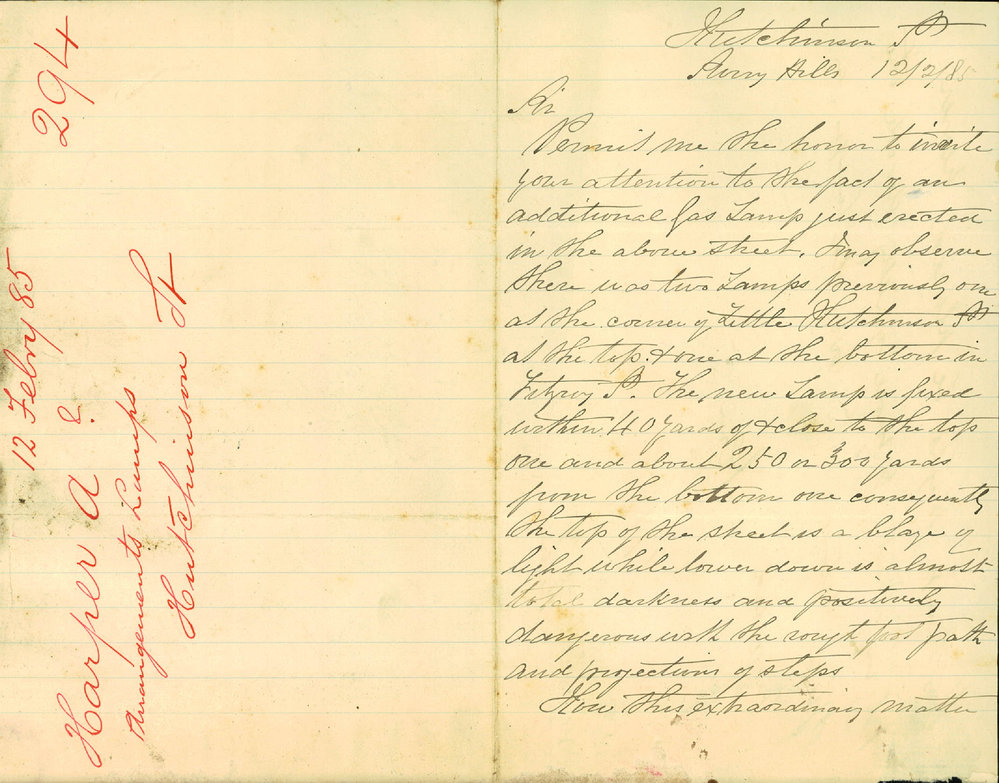 294
12 Febry 85
Harper A
?
Arrangements Lamps
Hutchinson St
Hutchinson St
Surry Hills 12/2/85
Sir
Permit me the honor to invite
your attention to the fact of an
additional Gas Lamp just erected
in the above street. I may observe
there was two Lamps previously one
at the corner of Little Hutchinson St
at the top & one at the bottom in
Fitzroy St. The new Lamp is fixed
within 40 yards of & close to the top
one and about 250 or 300 yards
from the bottom one consequently
the top of the street is a blaze of
light while lower down is almost
total darkness and positively
dangerous with the rough foot path
and projection of steps
How this extraordinary matter